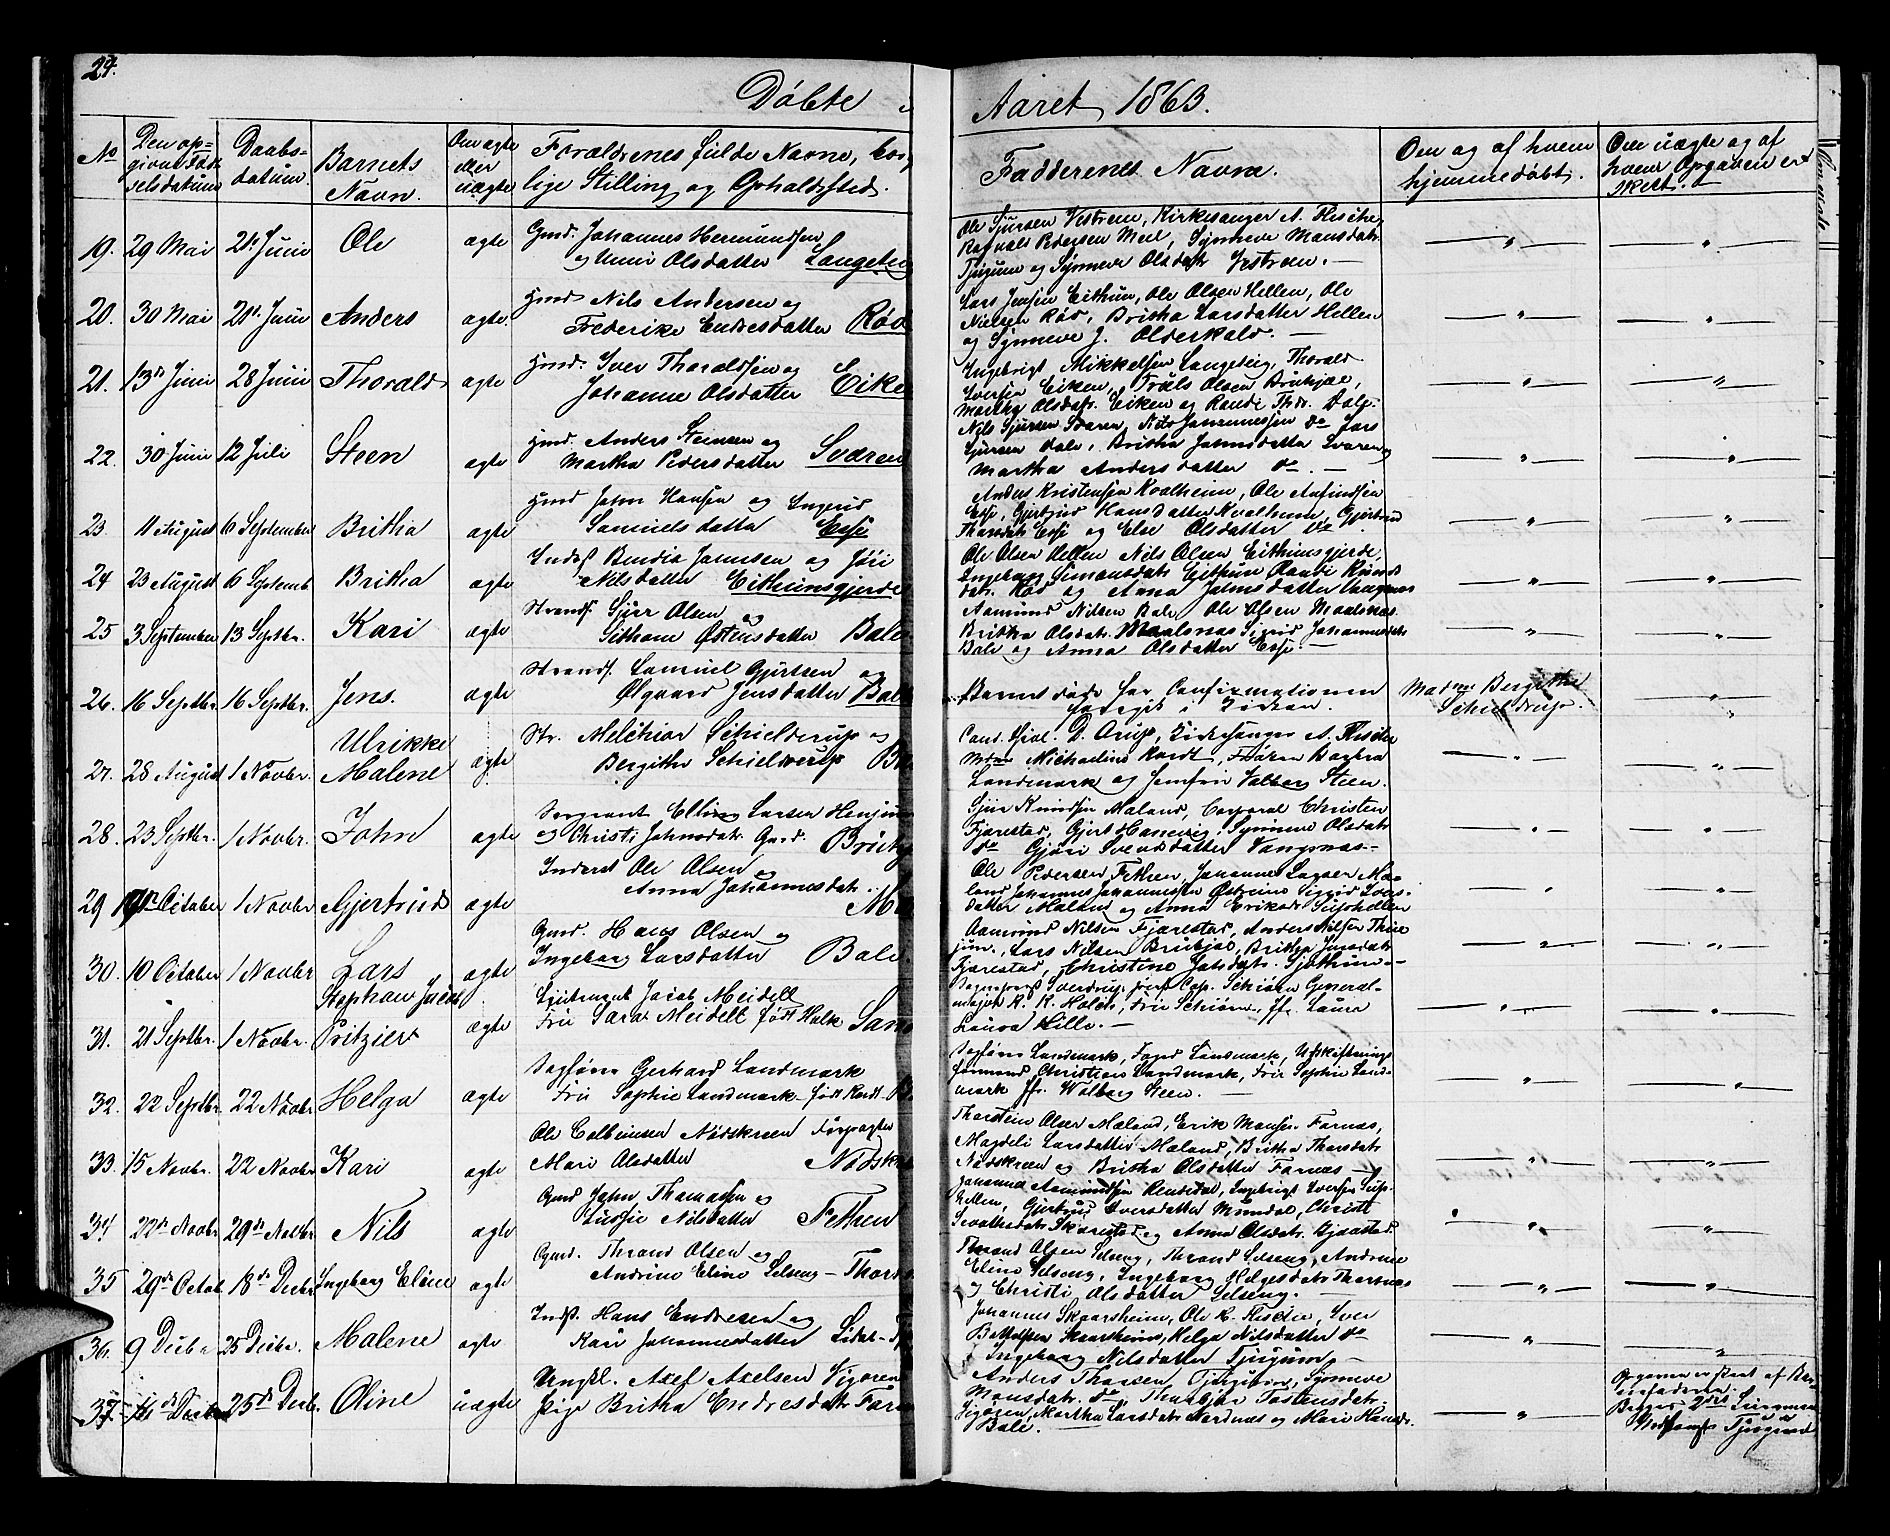 24.
Döbte
Aaret 1863.
No
Den op-
givne Föd-
selsdatum
Daabs-
datum.
Barnets
Navn.
Om ægte
eller
uægte
Forældrenes fulde Navne, bor-
lige Stilling og Opholdssted.
Faddernes Navne.
Om og af hvem
hjemmedöbt.
Om uægte og af
hvem Opgaven er
skeet.
19. 29 Mai 21de Juni Ole ægte Gmd. Johannes Hermundsen
og Unni Olsdatter Langetei
Ole Sjursen Vestrem, Kirkesanger A. Thistre
Ragnald Pedersen Meel, Synneve Mansdatr.
Tjugum og Synneve Olsdatr Vestrem.
20. 30 Mai 21de Juni Anders ægte. Gmd. Nils Andersen og
Frederike Endresdatter Röd
Lars Jensen Eithun, Ole Olsen Hellen, Ole
Nielsen Röd, Britha Larsdatter Hellen
og Synneve J. Olderkald.
21. 13de Juni 28 Juni Thorald ægte Gmd. Iver Tharaldsen og
Johanne Olsdatter Eike
Ingebrigt Mikkelsen Langeteig, Thorald
Iversen Eiken, Truls Olsen Brubjæe,
Martha Olsdatr. Eiken og Randi Thdr. Dale.
22. 30 Juni 12 Juli Steen ægte Gmd. Anders Steensen og
Martha Pedersdatter Sværen
Nils Sjursen Sværen, Nils Johannessen do Lars
Sjursen Dale, Britha Johnsdatter Sværen og
Martha Andersdatter do.
23. 11 August 6 September Britha ægte Gmd John Hansen og Ingrid
Samuelsdatter Esse
Anders Kristensen Kvalheim, Ole Anfindsen
Esse, Gjertrud Hansdatter Kvalheim, Gjertrud
Tharsdatr Esse og Else Olsdatter do
24 23 August 6 Septemb. Britha ægte Inderst Bendix Johnsen og Jöri
Nilsdatter Eithunsgjerde
Ole Olsen Hellen Nils Olsen Eithunsgjerde,
Ingeborg Simonsdatr. Eithun Randi
datr. Röd og Anna Johnsdatter Vangsnes
25 3 September 13 Septbr. Kari ægte Strands. Sjur Olsen og
Östensdatter Bale
Aamund Nilsen Bale Ole Olsen Maalsnæs
Britha Olsdatr. Maalsnæs Sigrid Johannesdatr
Bale og Anna Olsdatter Esse.
26. 16 Septbr. 16 Septbr. Jens. ægte Strands. Samuel Gjertsen og
Olgaard Jensdatter Bale
Barnet döde för Confirmationen
foregik i Kirken.
Madme Bergithe
Schieldrup.
27. 28 August 1 Novbr. Ulrikke
Malene ægte Str. Melchior Schielderup og
Bergithe Schielderup
Cand. theol. D. Arup, Kirkesanger A. Thistre
Mdme Michaeline Kordt, Fröken Barbra
Landmark og Jomfru Valborg Steen.
28. 23 Septbr. 1 Novbr. John ægte Sergeant Elling Larsen Henjum
og Christi Johnsdatr. Gmd.
Sjur Knudsen Maland, Corporal Christen
Fjærestad, Gjert Haneveg, Synneve Olsdatr
do Gjöri Svendsdatter Vangsnæs
29 October 1 Novbr Gjertrud ægte Inderst Ole Olsen og
Anna Johannesdatr.
Ole Pedersen Fethen, Johannes Lassesen Mæ-
land Johannes Johannessen Östreim Sigrid Ivers-
datter Mæland og Anna Eriksdr Suphellen
30. 10 October 1 Novbr Lars ægte Gmd. Hans Olsen og
Ingeborg Larsdatter Bale
Aamund Nilsen Fjærestad, Anders Nilsen Thue
jum. Lars Nilsen Brubjæe, Britha Jonsdatr
Fjærestad, Christine Jonsdatr. Sjöthun
31. 21 Septbr. 1 Novbr. Stephan Jacob
Pritzier ægte Leutenant Jacob Meidell
Fru Sara Meidell födt Holk
Sogneprest Sverdrup, Cap. Schiörn General-
major K. K. Holck, Fru Schiörn, Jfr. Laura
Laura Hille.
32. 22 Septbr. 22 Novbr Helga ægte Sagförer Gerhard Landmark
Fru Sophie Landmark födt Kordt
Sagförer Landmark, Foged Landmark, Udskiftnings
formand Christian Landmark, Fru Sophie Land-
mark Jfr. Valborg Steen.
33. 15 Novbr. 22 Novbr Kari ægte Ole Colbeinsen Nödskreen Forpagter
Mari Olsdatter Nödsk
Thorstein Olsen Mæland, Erik Monsen Farnæs,
Magdeli Larsdatter Mæland, Britha Tharsdatr
Nödskreen og Britha Olsdatter Farnæs
34 22de Novbr 29de Novbr Nils ægte Gmd John Thomassen og
Lussie Nilsdatter Fethen
Johannes Aamundsen Rendedal, Ingebrigt Iversen Sup-
hellen, Gjertrud Iversdatter Mundal, Christi
Sevathsdatr Skarestad og Anna Olsdatr. Bjaastad.
35 29de Octob 18de Decbr Ingeborg Eline ægte Gmd. Thrond Olsen og
Andrine Eline Selseng
Thrond Olsen Selseng, Thrond Selseng, Andrine
Eline Selseng, Ingeborg Helgesdatr Thorsnæs
og Christi Olsdatter Selseng.
36. 9 Decbr 25 Decbr. Malene ægte Indst. Hans Endresen og
Kari Johannesdatter
Johannes Skaarsheim, Ole K. Thistre, Iver
Botolfsen Skaarsheim, Helga Nilsdatter do
Ingeborg Nilsdatter Tjugum.
37 25de Decb. Oline uægte Ungkl. Axel Axelsen
Pige Britha Endresdatr
Anders Thorsen Tjugum, Synneve
Monsdatr. do, Thorbjör Tostensdatr.
Martha Larsdatr. Nordnæs og Mari Hansdr.
Bale.
Opgaven er skeet af Bar-
nefaderen.
Tjugum